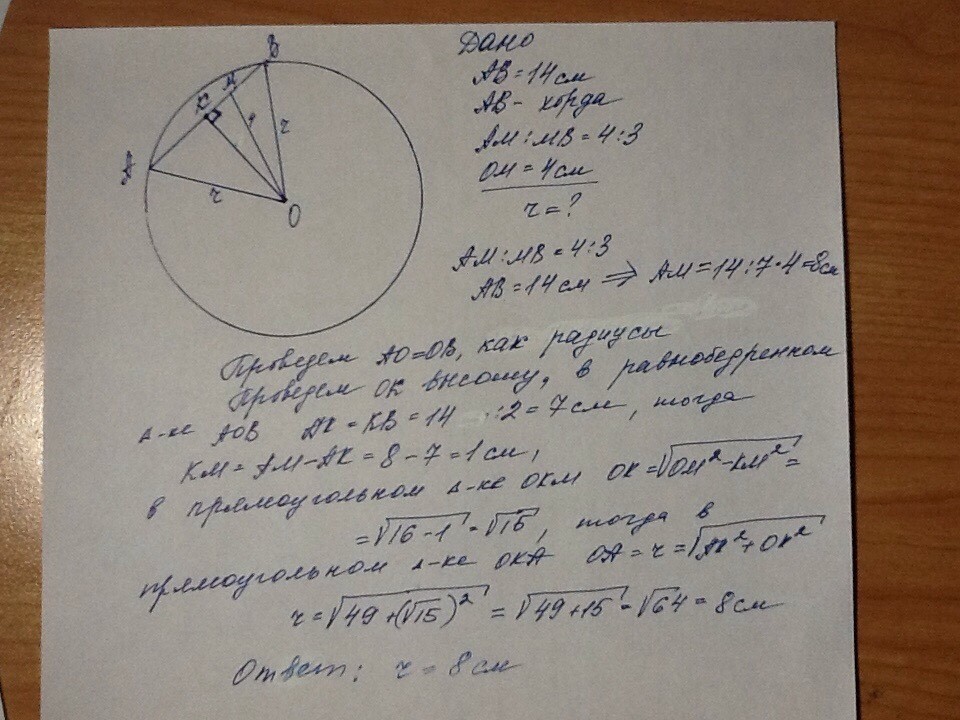 Дано
AB=14см
AB- хорда
AM:MB=4:3
OM=4см
r=?
A
K
M
B
4
r
r
O
AM:MB=4:3
AB=14см ⇒ AM=14:7·4=8см
Проведем AO=OB, как радиусы
Проведем OK высоту, в равнобедренном
Δ-ке AOB AK=KB=14 :2=7см, тогда
KM=AM-AK=8-7=1см,
в прямоугольном Δ-ке OKM OK=√OM²-KM²=
=√16-1=√15, тогда в
прямоугольном Δ-ке OKA OA=r=√AK²+OK²
r=√49+(√15)²=√49+15=√64=8см
Ответ: r=8см